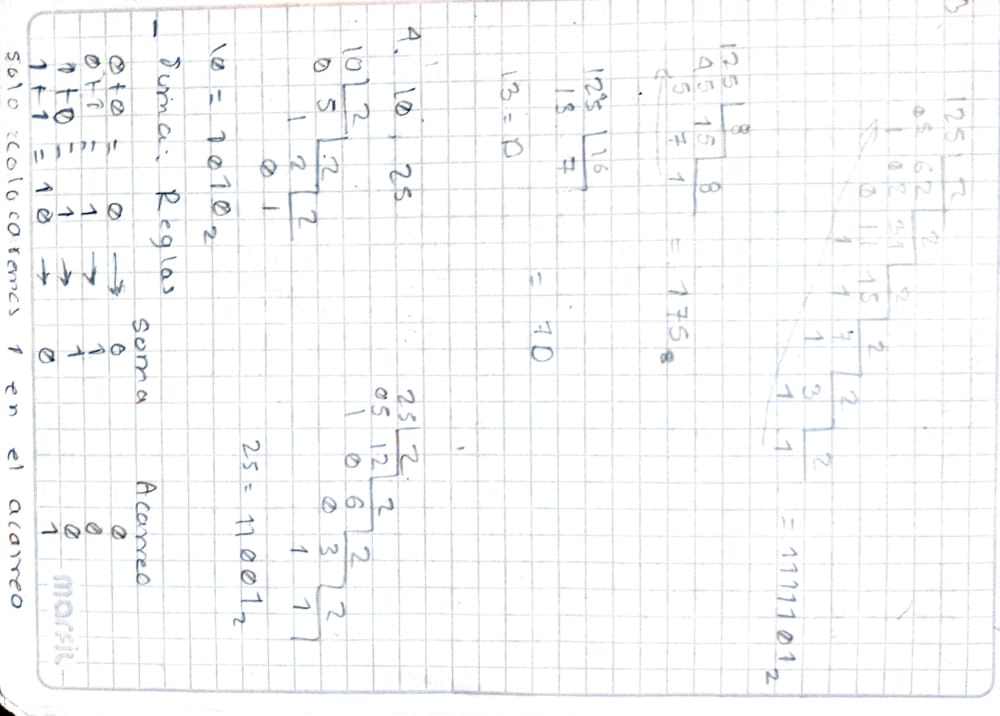 125 | 2
05 62 | 2
1 02 31 | 2
0 11 15 | 2
1 1 7 | 2
1 3 | 2
1 1
= 1111101₂
125 | 8
45 15 | 8
5 7 1
= 175₈
125 | 16
13 7
13 = D
= 7D
A. 10, 25
10 | 2
0 5 | 2
1 2 | 2
0 1
10 = 1010₂
25 | 2
05 12 | 2
1 0 6 | 2
0 3 | 2
1 1
25 = 11001₂
- Suma: Reglas
Suma Acarreo
0+0 = 0 → 0 0
0+1 = 1 → 1 0
1+0 = 1 → 1 0
1+1 = 10 → 0 1
solo colocaremos 1 en el acarreo
marfil